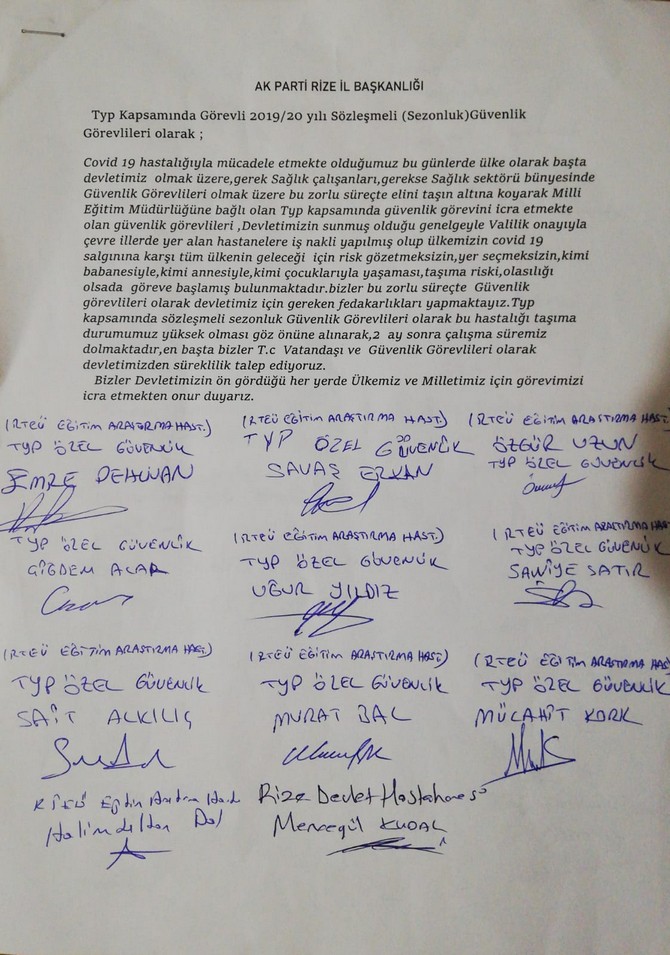 AK PARTİ RİZE İL BAŞKANLIĞI
Typ Kapsamında Görevli 2019/20 yılı Sözleşmeli (Sezonluk)Güvenlik
Görevlileri olarak ;
Covid 19 hastalığıyla mücadele etmekte olduğumuz bu günlerde ülke olarak başta
devletimiz olmak üzere,gerek Sağlık çalışanları,gerekse Sağlık sektörü bünyesinde
Güvenlik Görevlileri olmak üzere bu zorlu süreçte elini taşın altına koyarak Milli
Eğitim Müdürlüğüne bağlı olan Typ kapsamında güvenlik görevini icra etmekte
olan güvenlik görevlileri ,Devletimizin sunmuş olduğu genelgeyle Valilik onayıyla
çevre illerde yer alan hastanelere iş nakli yapılmış olup ülkemizin covid 19
salgınına karşı tüm ülkenin geleceği için risk gözetmeksizin,yer seçmeksizin,kimi
babanesiyle,kimi annesiyle,kimi çocuklarıyla yaşaması,taşıma riski,olasılığı
olsada göreve başlamış bulunmaktadır.bizler bu zorlu süreçte Güvenlik
görevlileri olarak devletimiz için gereken fedakarlıkları yapmaktayız.Typ
kapsamında sözleşmeli sezonluk Güvenlik Görevlileri olarak bu hastalığı taşıma
durumumuz yüksek olması göz önüne alınarak,2 ay sonra çalışma süremiz
dolmaktadır,en başta bizler T.c Vatandaşı ve Güvenlik Görevlileri olarak
devletimizden süreklilik talep ediyoruz.
Bizler Devletimizin ön gördüğü her yerde Ülkemiz ve Milletimiz için görevimizi
icra etmekten onur duyarız.
(RTEÜ EĞİTİM ARAŞTIRMA HAST.)
TYP ÖZEL GÜVENLİK
EMRE PEHLİVAN
(RTEÜ EĞİTİM ARAŞTIRMA HAST.)
TYP ÖZEL GÜVENLİK
SAVAŞ ERKAN
(RTEÜ EĞİTİM ARAŞTIRMA HAST.
ÖZGÜR UZUN
TYP ÖZEL GÜVENLİK
TYP ÖZEL GÜVENLİK
ÇİĞDEM ACAR
(RTEÜ EĞİTİM ARAŞTIRMA HAST.)
TYP ÖZEL GÜVENLİK
UĞUR YILDIZ
(RTEÜ EĞİTİM ARAŞTIRMA HAS
TYP ÖZEL GÜVENLİK
SANİYE SATIR
(RTEÜ EĞİTİM ARASTIRMA HAST.)
TYP ÖZEL GÜVENLİK
SAİT ALKILIÇ
(RTEÜ EĞİTİM ARASTIRMA HAST.)
TYP ÖZEL GÜVENLİK
MURAT BAL
(RTEÜ EĞİTİM ARAŞTIRMA HAST
TYP ÖZEL GÜVENLİK
MÜCAHİT KORK
RTEÜ Eğitim
Dal
Rize Devlet Hastahanesi